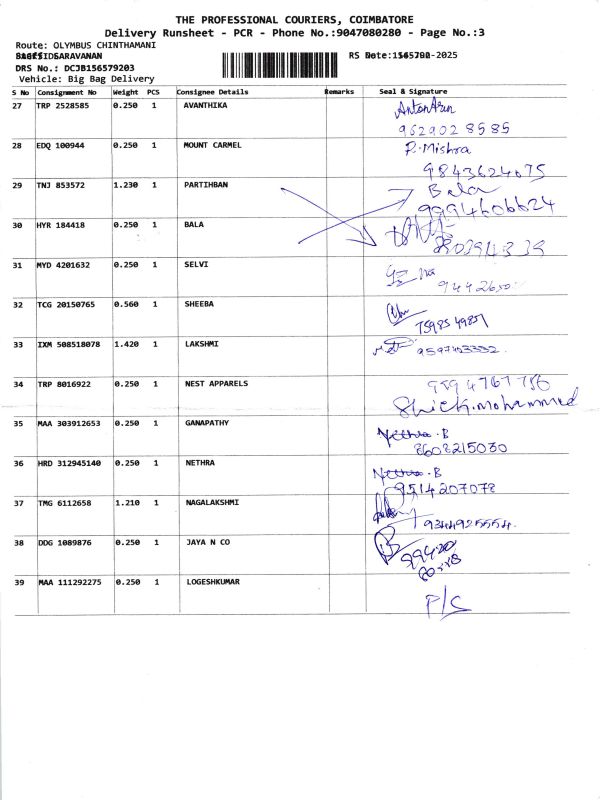 THE PROFESSIONAL COURIERS, COIMBATORE
Delivery Runsheet - PCR - Phone No.:9047080280 - Page No.:3
Route: OLYMBUS CHINTHAMANI
SARAVANAN
DRS No.: DCJB156579203
Vehicle: Big Bag Delivery
S No Consignment No Weight PCS Consignee Details Remarks Seal & Signature
27 TRP 2528585 0.250 1 AVANTHIKA
9629028585
28 EDQ 100944 0.250 1 MOUNT CARMEL P. Mishra
9843624675
29 TNJ 853572 1.230 1 PARTIHBAN Bala
9994606624
30 HYR 184418 0.250 1 BALA
31 MYD 4201632 0.250 1 SELVI
32 TCG 20150765 0.560 1 SHEEBA
33 IXM 508518078 1.420 1 LAKSHMI 9597403332.
34 TRP 8016922 0.250 1 NEST APPARELS
35 MAA 303912653 0.250 1 GANAPATHY Nethra. B
8608215030
36 HRD 312945140 0.250 1 NETHRA Nethra. B
9514207078
37 TMG 6112658 1.210 1 NAGALAKSHMI
9344925554.
38 DDG 1089876 0.250 1 JAYA N CO
39 MAA 111292275 0.250 1 LOGESHKUMAR
P/C